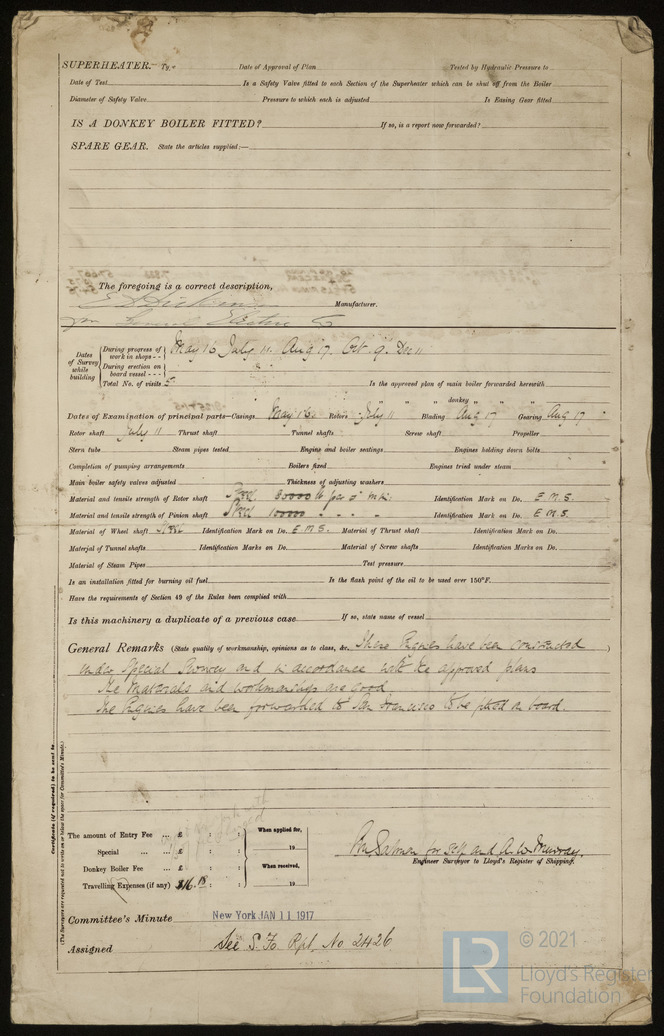 SUPERHEATER. Type Date of Approval of Plan Tested by Hydraulic Pressure to
Date of Test Is a Safety Valve fitted to each Section of the Superheater which can be shut off from the Boiler
Diameter of Safety Valve Pressure to which each is adjusted Is Easing Gear fitted
IS A DONKEY BOILER FITTED? If so, is a report now forwarded?
SPARE GEAR. State the articles supplied:—
The foregoing is a correct description,
Manufacturer.
General Electric Co
Dates of Survey while building
During progress of work in shops - - May 16 July 11. Aug 17. Oct. 9. Dec 11
During erection on board vessel - - -
Total No. of visits 5 Is the approved plan of main boiler forwarded herewith
" " donkey " " "
Dates of Examination of principal parts—Casings May 16 Rotors July 11 Blading Aug 17 Gearing Aug 17
Rotor shaft July 11 Thrust shaft Tunnel shafts Screw shaft Propeller
Stern tube Steam pipes tested Engine and boiler seatings Engines holding down bolts
Completion of pumping arrangements Boilers fixed Engines tried under steam
Main boiler safety valves adjusted Thickness of adjusting washers
Material and tensile strength of Rotor shaft Steel Identification Mark on Do. E.M.S.
Material and tensile strength of Pinion shaft Steel Identification Mark on Do. E.M.S.
Material of Wheel shaft Steel Identification Mark on Do. E.M.S. Material of Thrust shaft Identification Mark on Do.
Material of Tunnel shafts Identification Marks on Do. Material of Screw shafts Identification Marks on Do.
Material of Steam Pipes Test pressure
Is an installation fitted for burning oil fuel Is the flash point of the oil to be used over 150°F.
Have the requirements of Section 49 of the Rules been complied with
Is this machinery a duplicate of a previous case If so, state name of vessel
General Remarks (State quality of workmanship, opinions as to class, &c. These Engines have been constructed )
under Special Survey and in accordance with the approved plans
The Materials and workmanship are good.
The Engines have been forwarded to San Francisco to be fitted on board.
Certificate (if required) to be sent to
(The Surveyors are requested not to write on or below the space for Committee's Minute.)
The amount of Entry Fee ... £ : : When applied for,
Special ... ... £ : : 19
Donkey Boiler Fee ... £ : : When received,
Travelling Expenses (if any) $16.18 : 19
Salmon for self and A. W. Murray.
Engineer Surveyor to Lloyd's Register of Shipping.
Committee's Minute New York JAN 11 1917
Assigned See S. Fo Rpt. No 2426
LR
© 2021
Lloyd's Register
Foundation